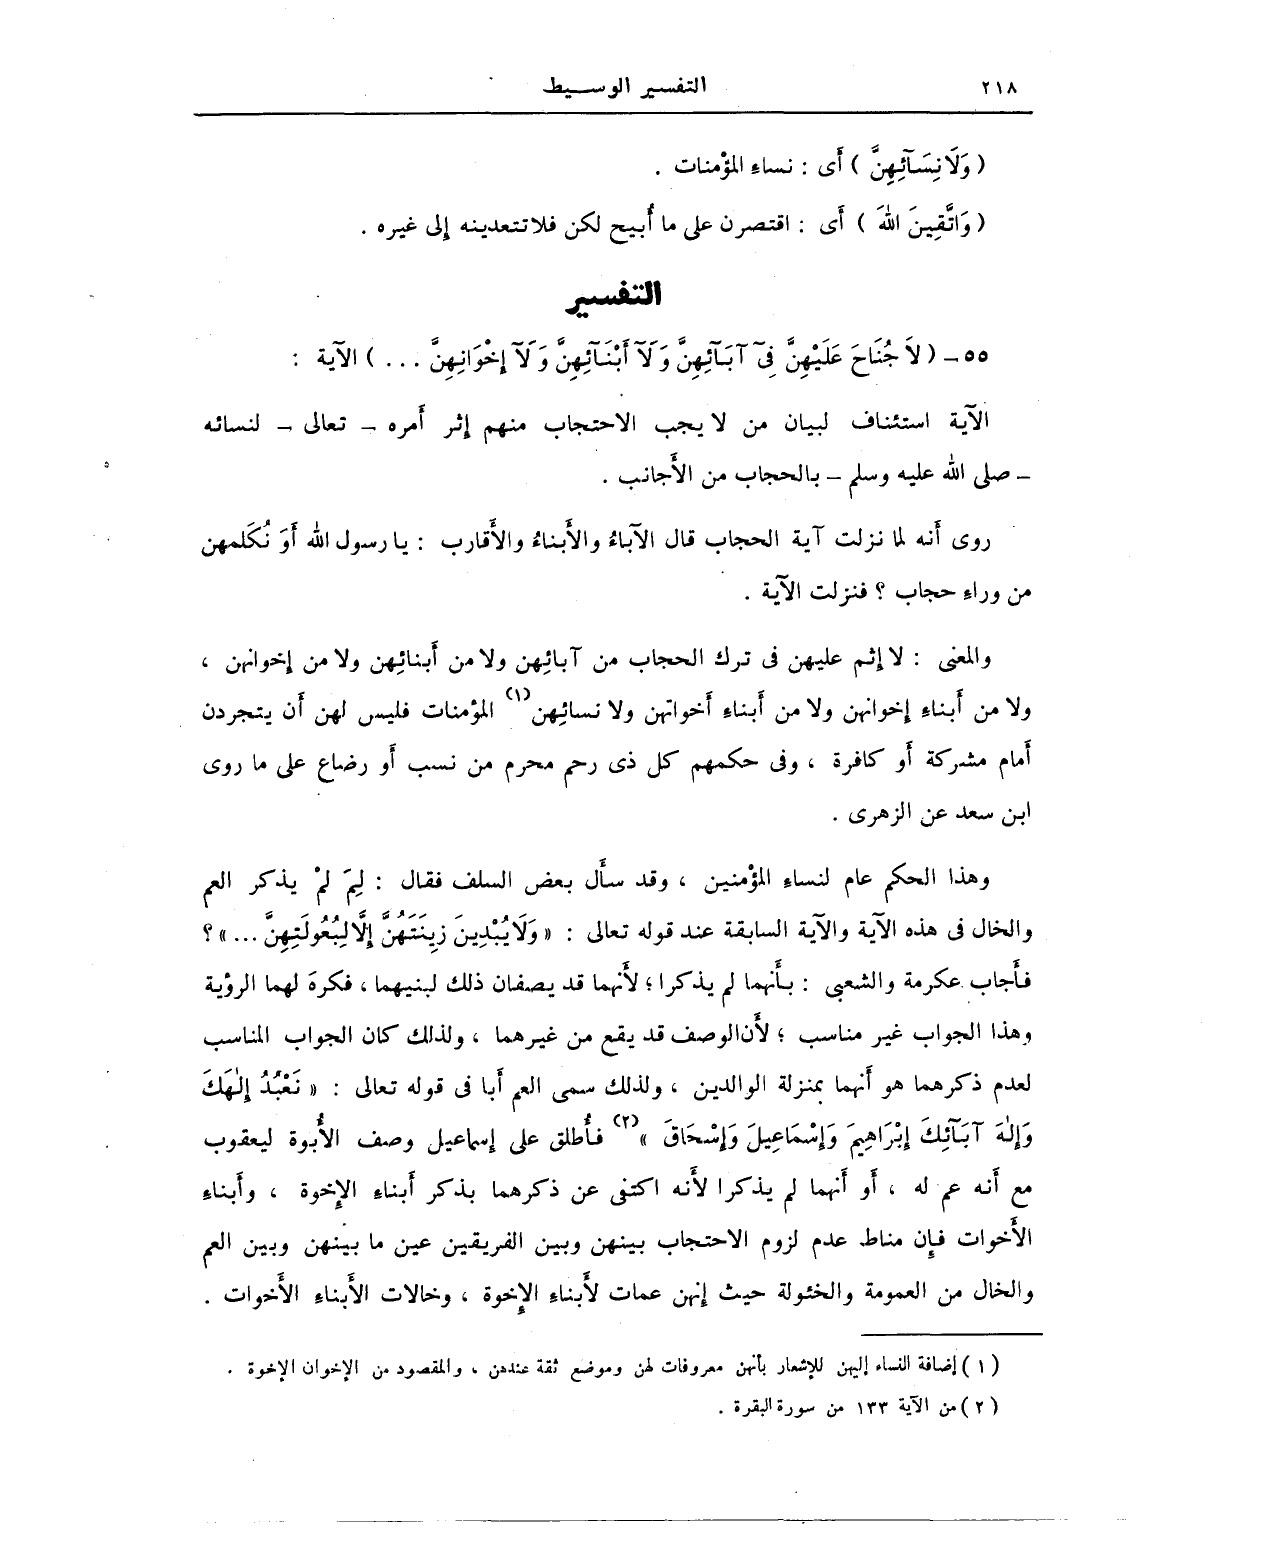 ٢١٨
التفسير الوسيط
( وَلَا نِسَآئِهِنَّ ) أَى : نساءِ المؤْمنات .
( وَاتَّقِينَ اللهَ ) أَى : اقتصرن على ما أُبيح لكن فلا تتعدينه إلى غيره .
التفسير
٥٥ - ( لاَ جُنَاحَ عَلَيْهِنَّ فِىٓ آبَآئِهِنَّ وَلَآ أَبْنَآئِهِنَّ وَلَآ إِخْوَانِهِنَّ ... ) الآية :
الآية استئناف لبيان من لا يجب الاحتجاب منهم إثر أَمره - تعالى - لنسائه
- صلى الله عليه وسلم - بالحجاب من الأَجانب .
روى أَنه لما نزلت آية الحجاب قال الآباءُ والأَبناءُ والأَقارب : يا رسول الله أَوَ نُكَلمهن
من وراءِ حجاب ؟ فنزلت الآية .
والمعنى : لا إثم عليهن فى ترك الحجاب من آبائهن ولا من أَبنائِهن ولا من إخوانهن ،
ولا من أَبناءِ إخوانهن ولا من أَبناءِ أَخواتهن ولا نسائِهن(١) المؤمنات فليس لهن أَن يتجردن
أَمام مشركة أَو كافرة ، وفى حكمهم كل ذى رحم محرم من نسب أَو رضاع على ما روى
ابن سعد عن الزهرى .
وهذا الحكم عام لنساءِ المؤْمنين ، وقد سأَل بعض السلف فقال : لِمَ لمْ يذكر العم
والخال فى هذه الآية والآية السابقة عند قوله تعالى : « وَلَا يُبْدِينَ زِينَتَهُنَّ إِلَّا لِبُعُولَتِهِنَّ ... » ؟
فأَجاب عكرمة والشعبى : بأَنهما لم يذكرا ؛ لأَنهما قد يصفان ذلك لبنيهما ، فكرهَ لهما الرؤية
وهذا الجواب غير مناسب ؛ لأَن الوصف قد يقع من غيرهما ، ولذلك كان الجواب المناسب
لعدم ذكرهما هو أَنهما بمنزلة الوالدين ، ولذلك سمى العم أَبا فى قوله تعالى : « نَعْبُدُ إِلٰهَكَ
وَإِلٰهَ آبَآئِكَ إِبْرَاهِيمَ وَإِسْمَاعِيلَ وَإِسْحَاقَ »(٢) فأَطلق على إسماعيل وصف الأُبوة ليعقوب
مع أَنه عم له ، أَو أَنهما لم يذكرا لأَنه اكتفى عن ذكرهما بذكر أَبناءِ الإِخوة ، وأَبناءِ
الأَخوات فإِن مناط عدم لزوم الاحتجاب بينهن وبين الفريقين عين ما بينهن وبين العم
والخال من العمومة والخئولة حيث إنهن عمات لأَبناءِ الإِخوة ، وخالات الأَبناءِ الأَخوات .
( ١ ) إضافة النساء إليهن للإشعار بأنهن معروفات لهن وموضع ثقة عندهن ، والمقصود من الإخوان الإخوة .
( ٢ ) من الآية ١٣٣ من سورة البقرة .